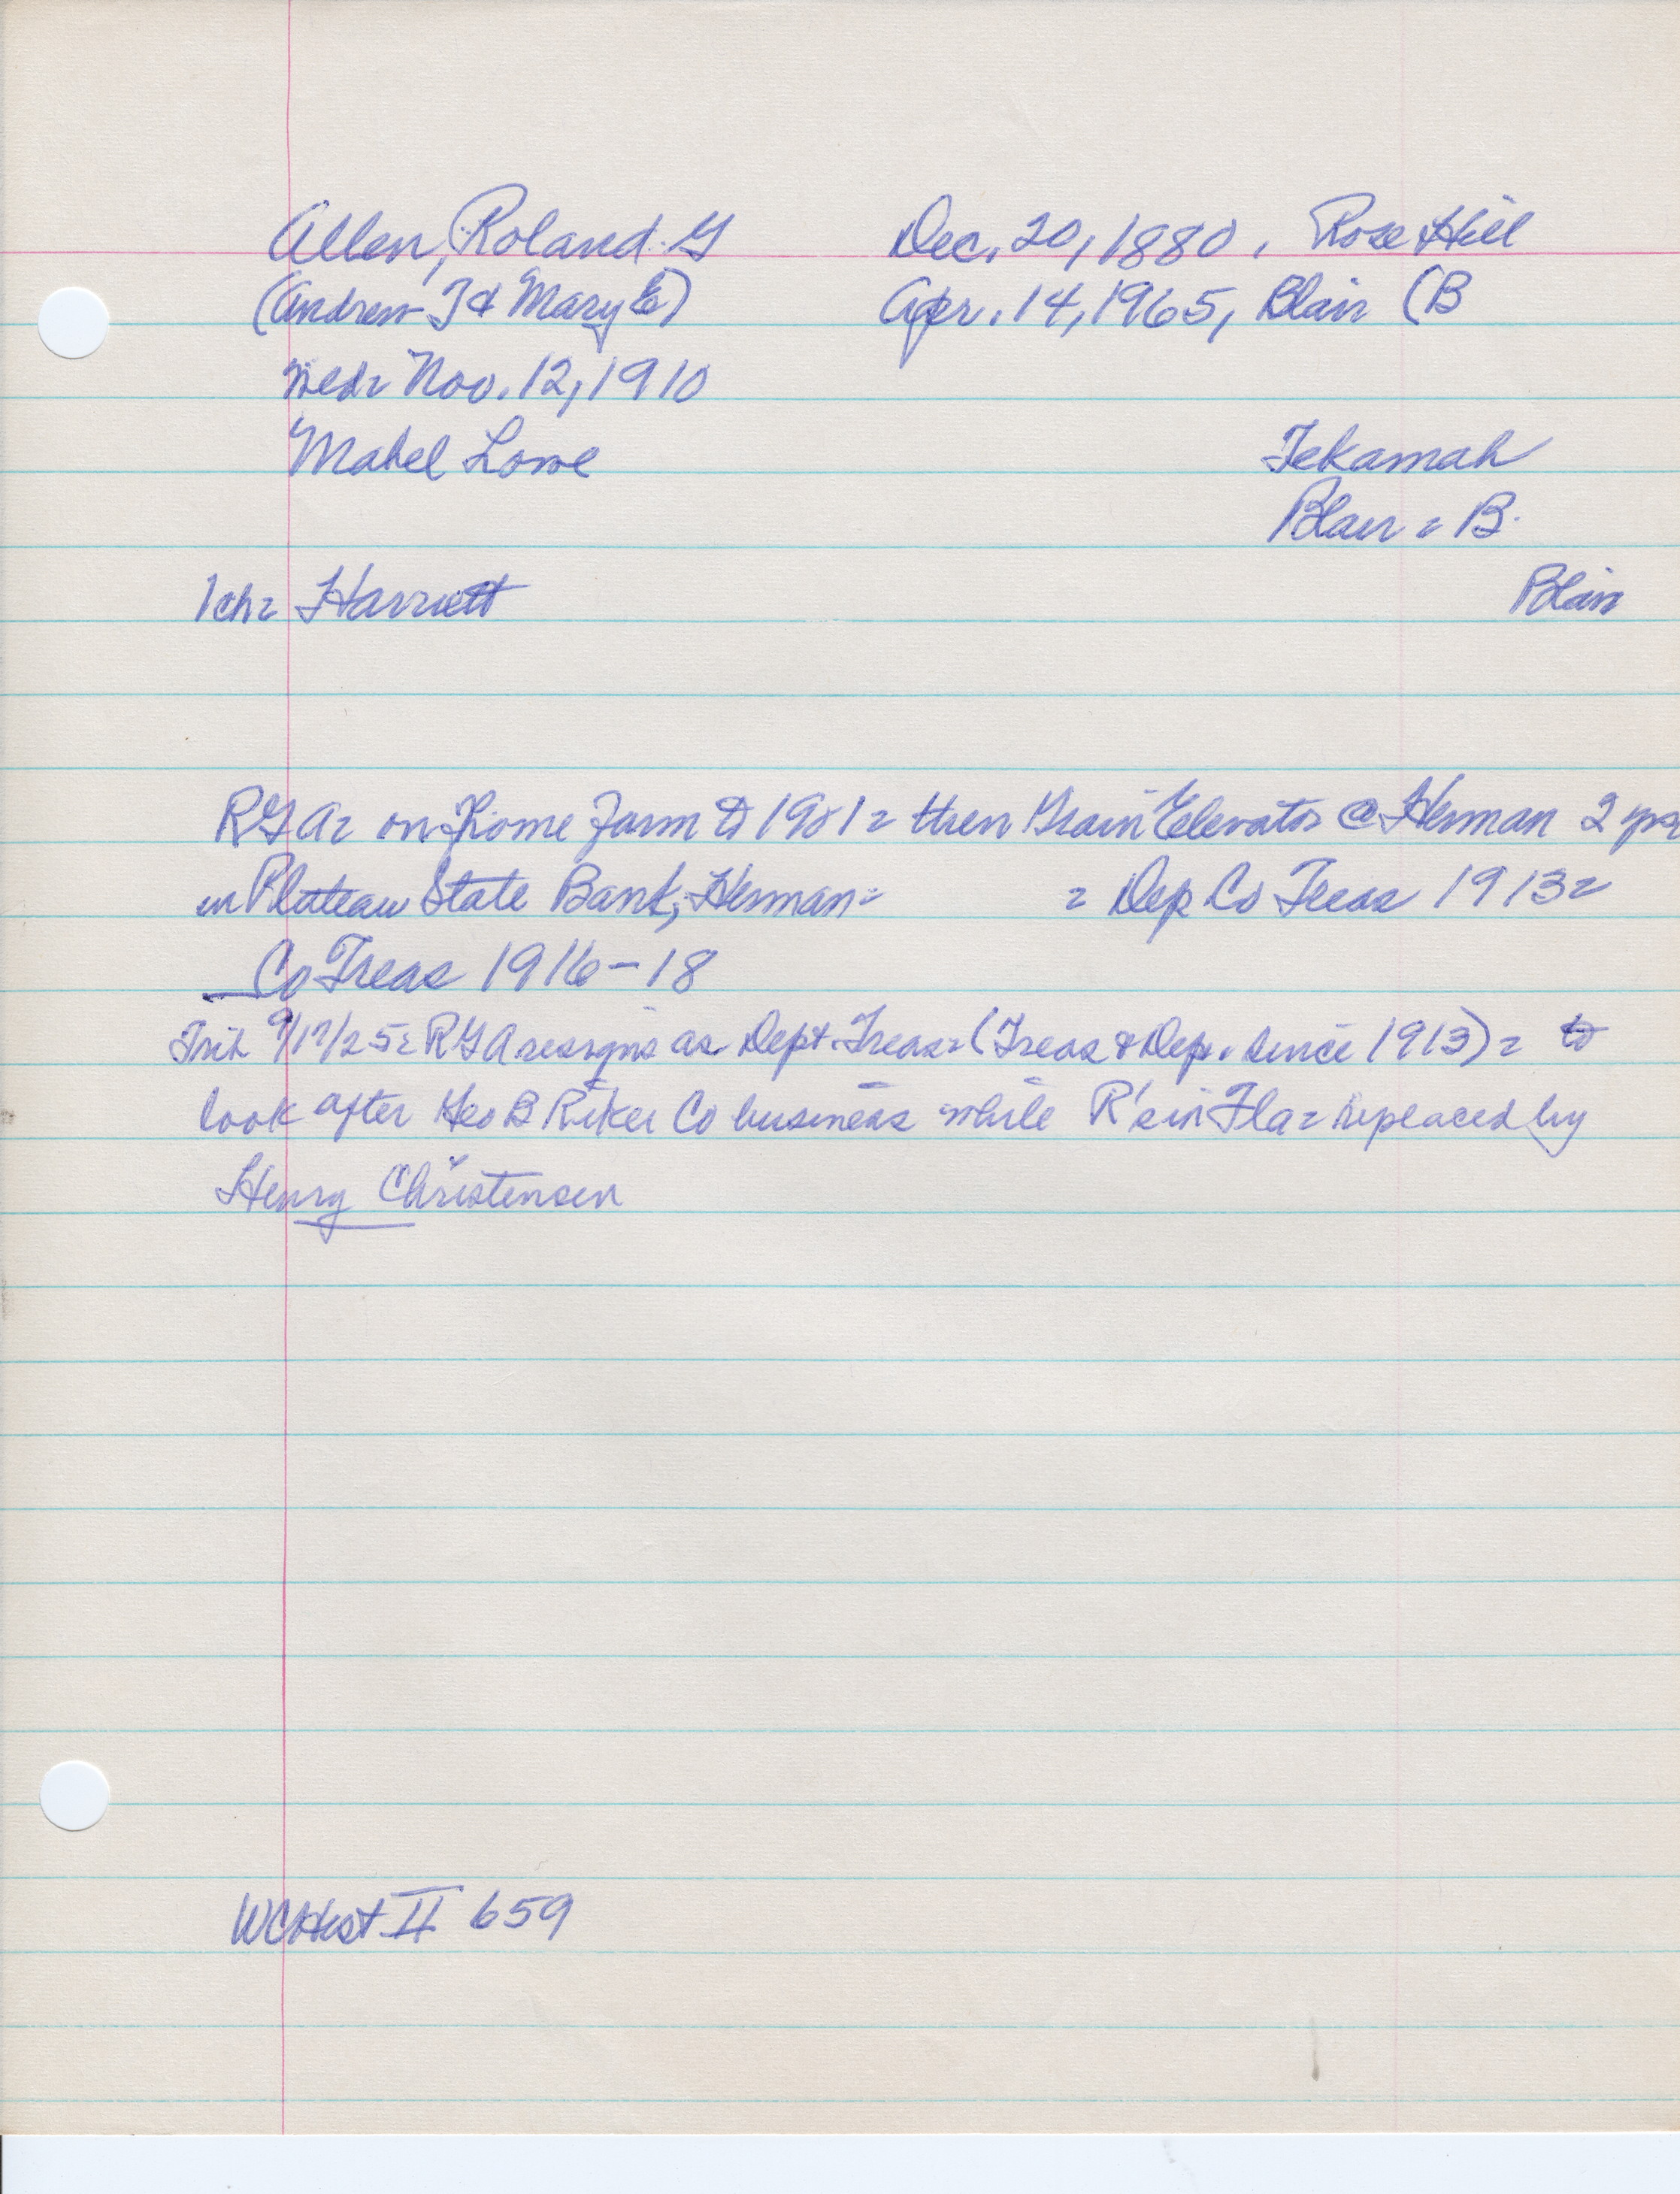 Allen, Roland G Dec. 20, 1880, Rose Hill
(Andrew J & Mary E) Apr. 14, 1965, Blair (B
wed= Nov. 12, 1910
Mabel Lowe Tekamah
Blair = B.
1 ch= Harriett Blair
RGA= on Home Farm to 1901= then Grain Elevator @ Herman 2 yrs
in Plateau State Bank, Herman= = Dep Co Treas 1913=
Co Treas 1916-18
Trib 9/17/25= RGA resigns as Dept. Treas= (Treas & Dep. since 1913) = to
look after Geo B Riker Co business while R's in Fla= replaced by
Henry Christensen
WCHist II 659